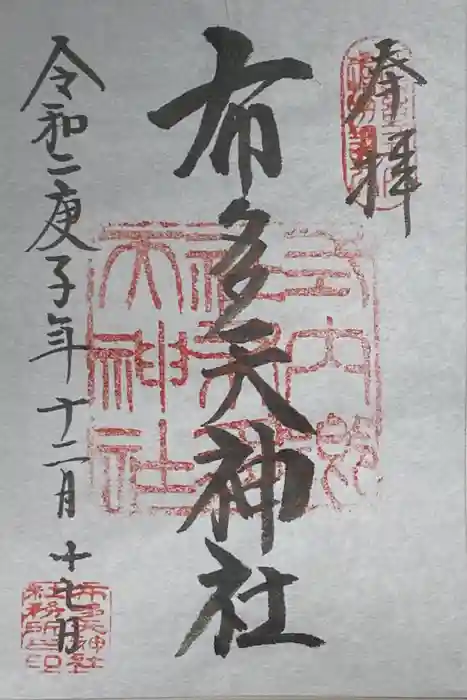 奉拝
布多天神社
令和二庚子年十二月十七日
式内郷
社布多
天神社
布多天神社
社務所印